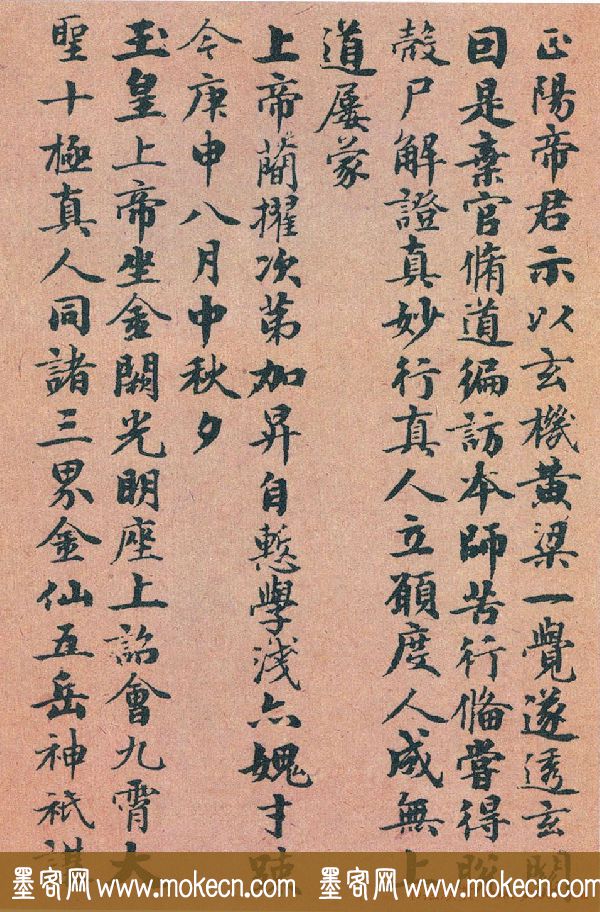 正陽帝君示以玄機黃梁一覺遂透玄關
曰是棄官脩道編訪本師苦行俻嘗得
殼尸解證真妙行真人立願度人成無上
道屢蒙
上帝蘭擢次第加昇自慙學淺亦媿才
今庚申八月中秋夕
玉皇上帝坐金闕光明座上詔會九霄大
聖十極真人同諸三界金仙五岳神祇
墨客网 www.mokecn.com 墨客网 www.mokecn.com